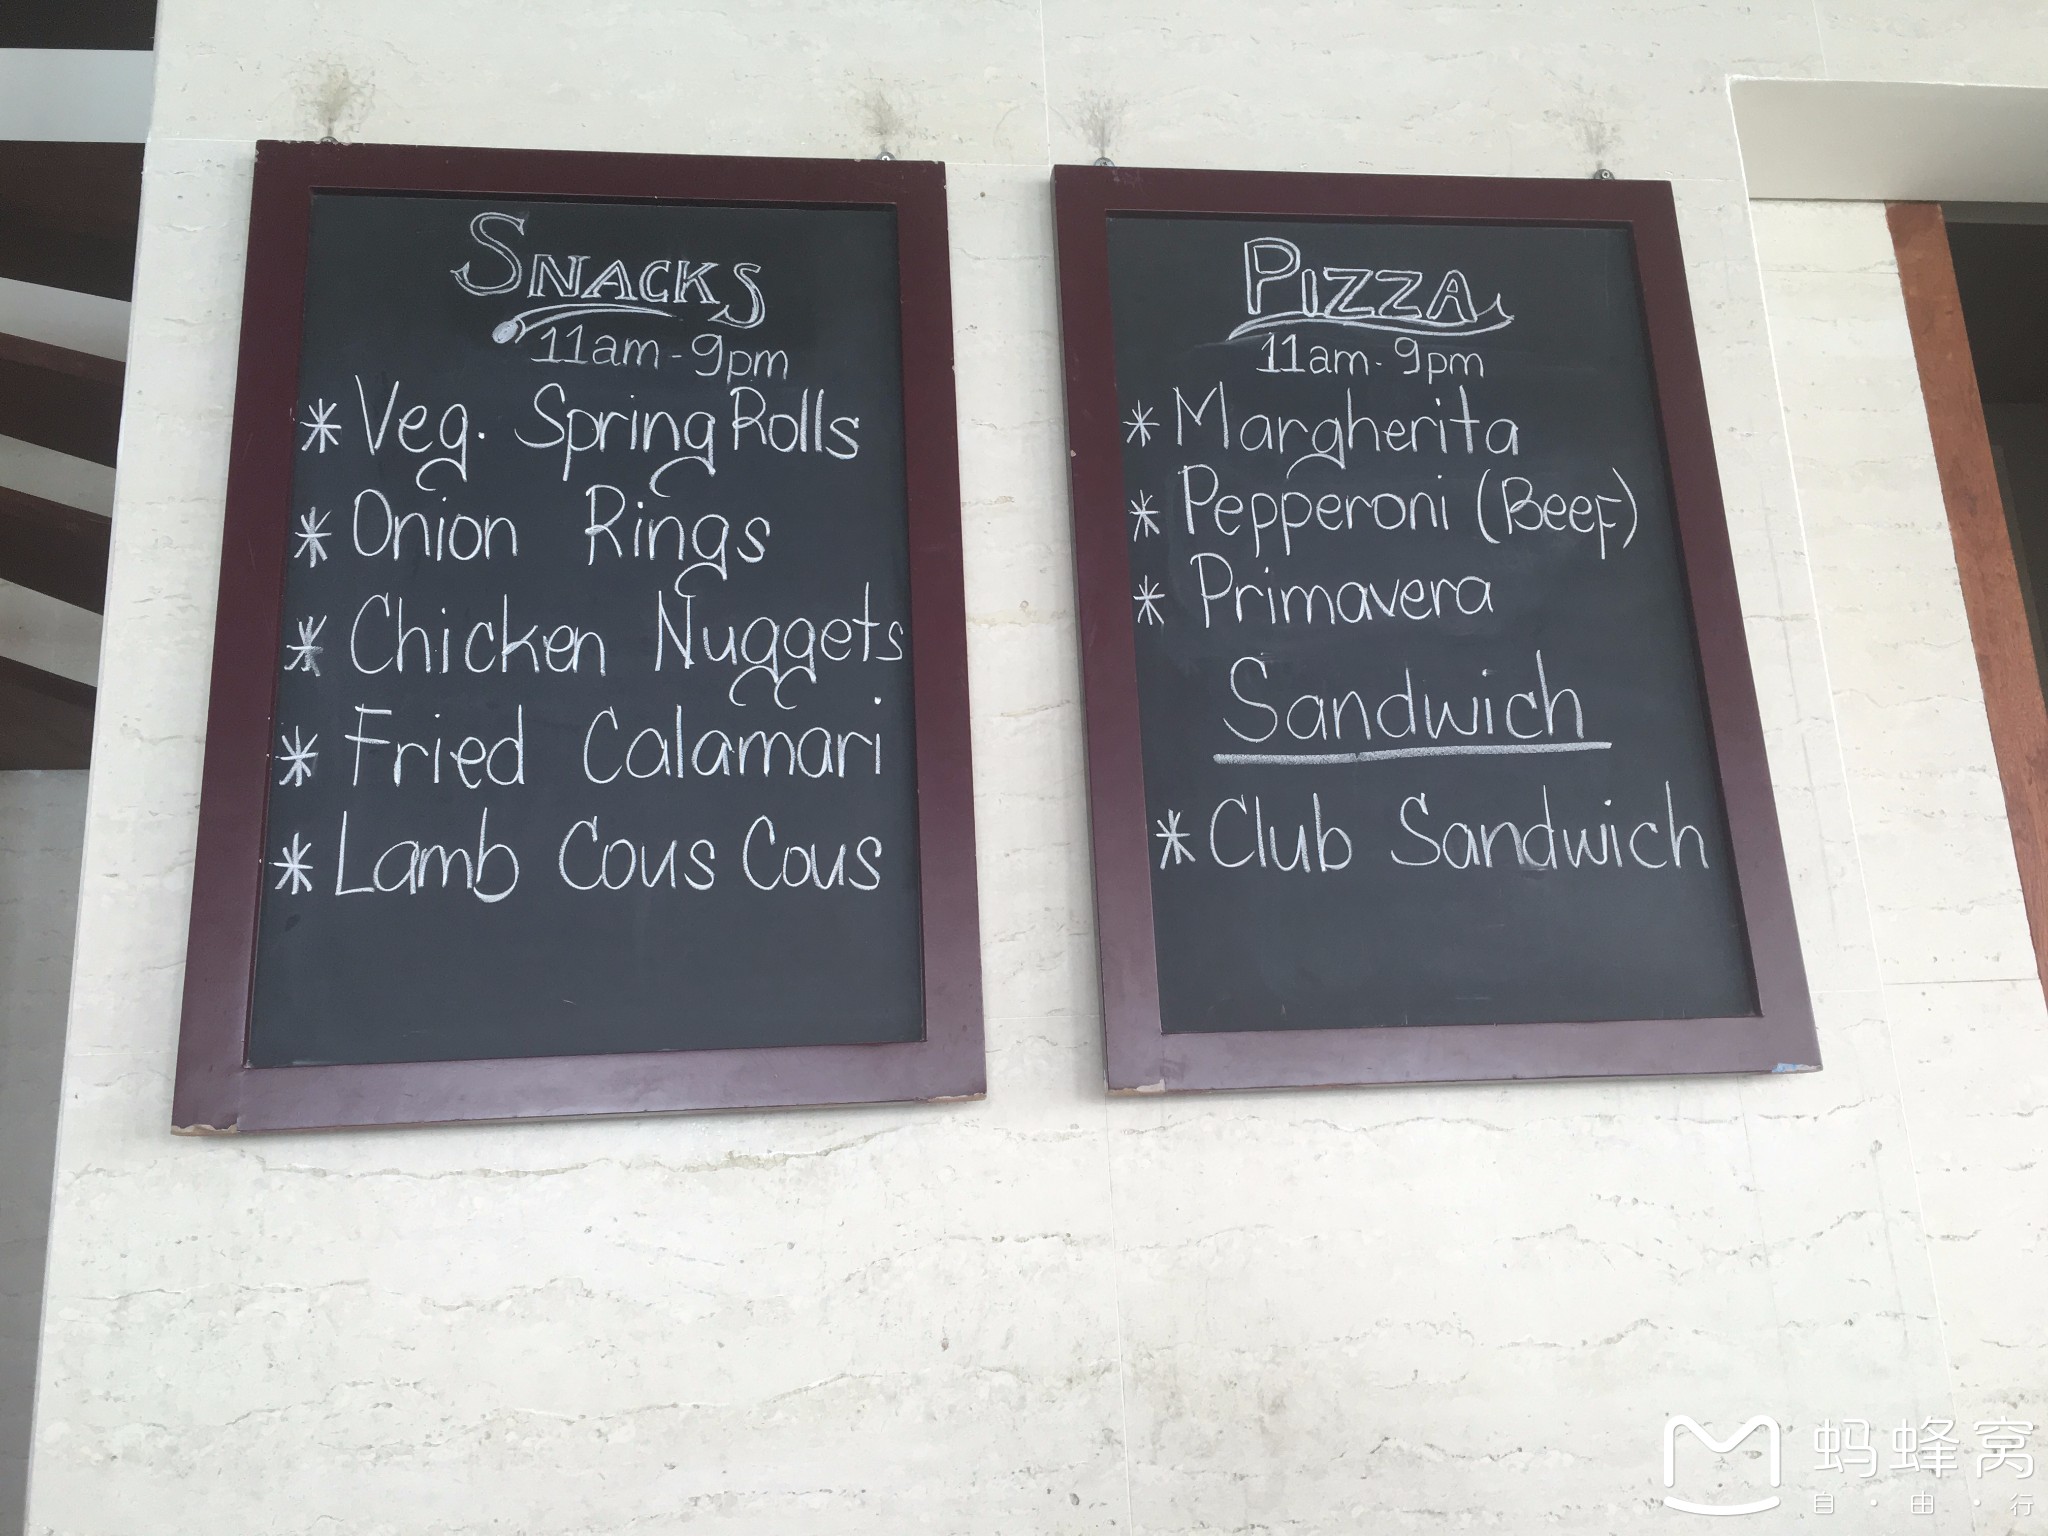 SNACKS
11am-9pm
* Veg. Spring Rolls
* Onion Rings
* Chicken Nuggets
* Fried Calamari
* Lamb Cous Cous
PIZZA
11am-9pm
* Margherita
* Pepperoni (Beef)
* Primavera
Sandwich
* Club Sandwich
蚂蜂窝
自·由·行